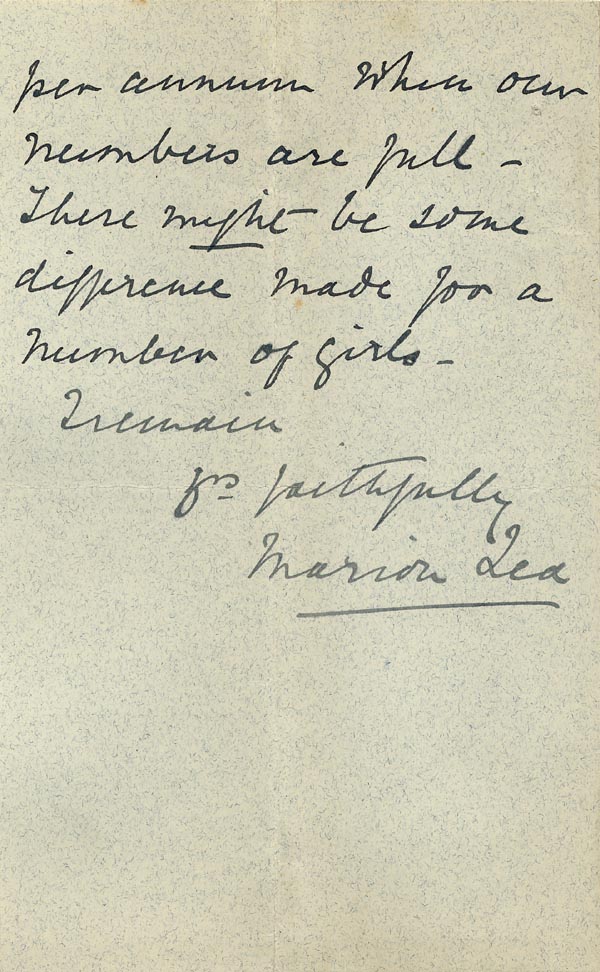 per annum when our
numbers are full –
There might be some
difference made for a
number of girls –
I remain
Yrs faithfully
Marion